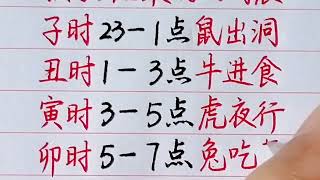 子时23-1点鼠出洞
丑时1-3点牛进食
寅时3-5点虎夜行
卯时5-7点兔吃